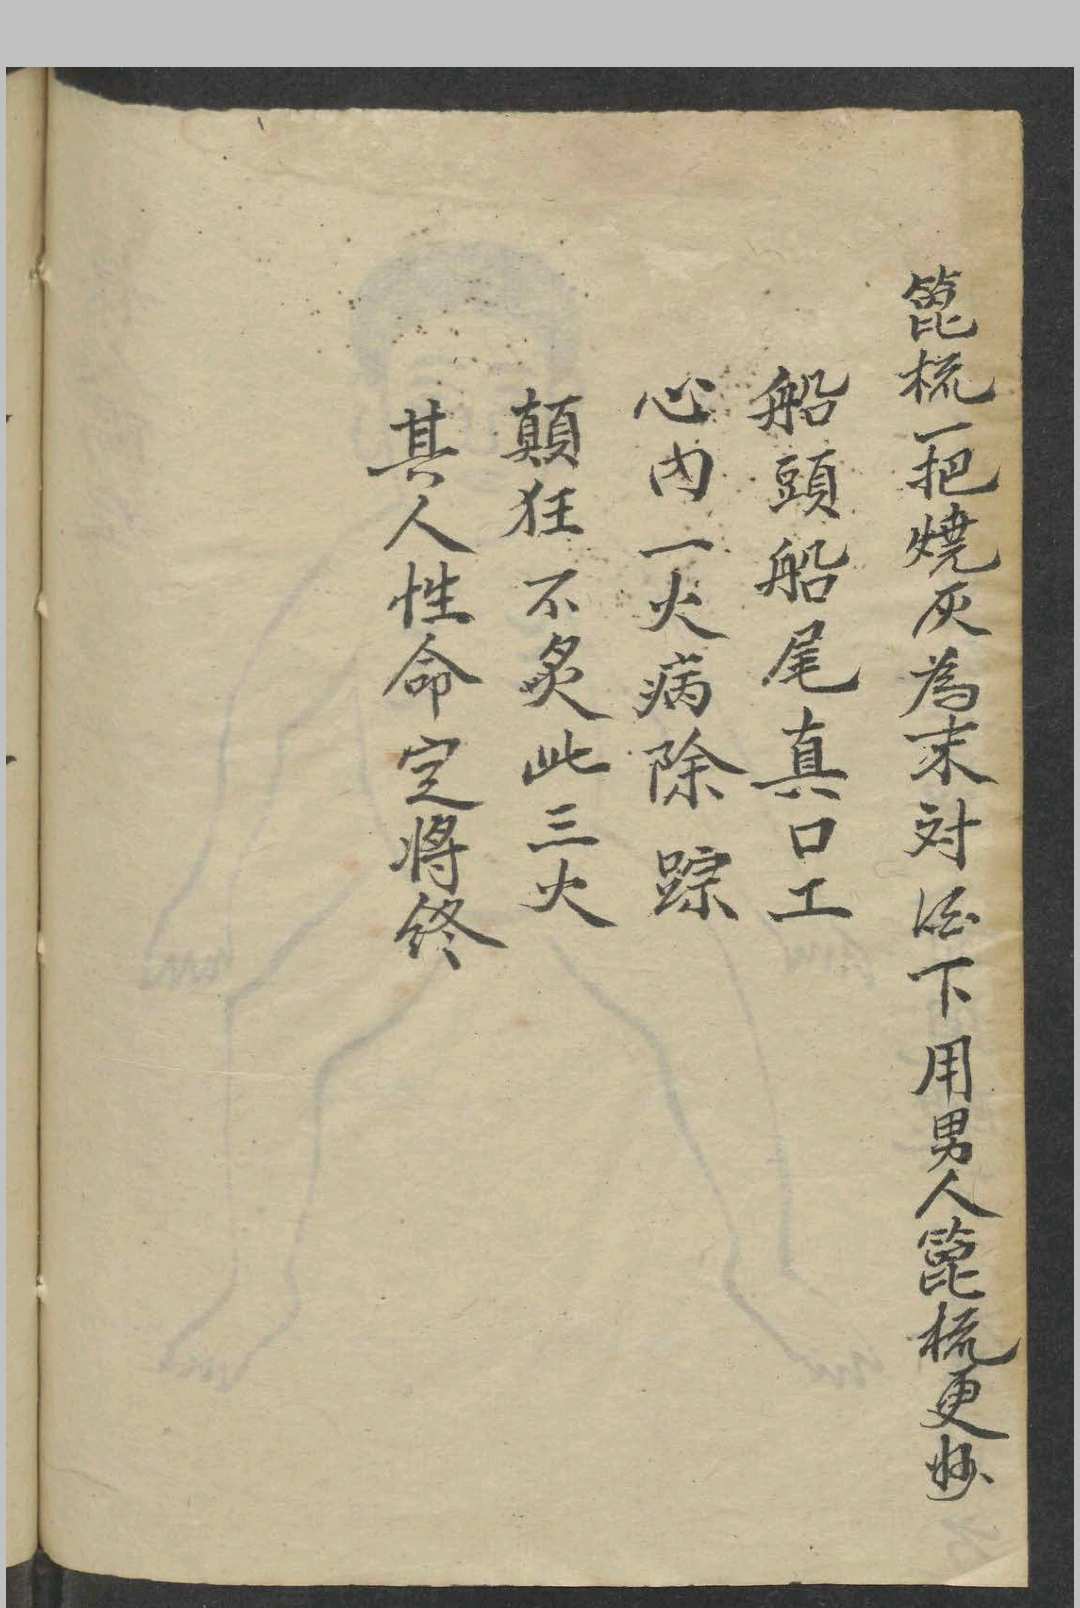 篦梳一把燒灰為末対酒下用男人篦梳更妙
船頭船尾真口工
心內一火病除踪
顛狂不炙此三火
其人性命定將终